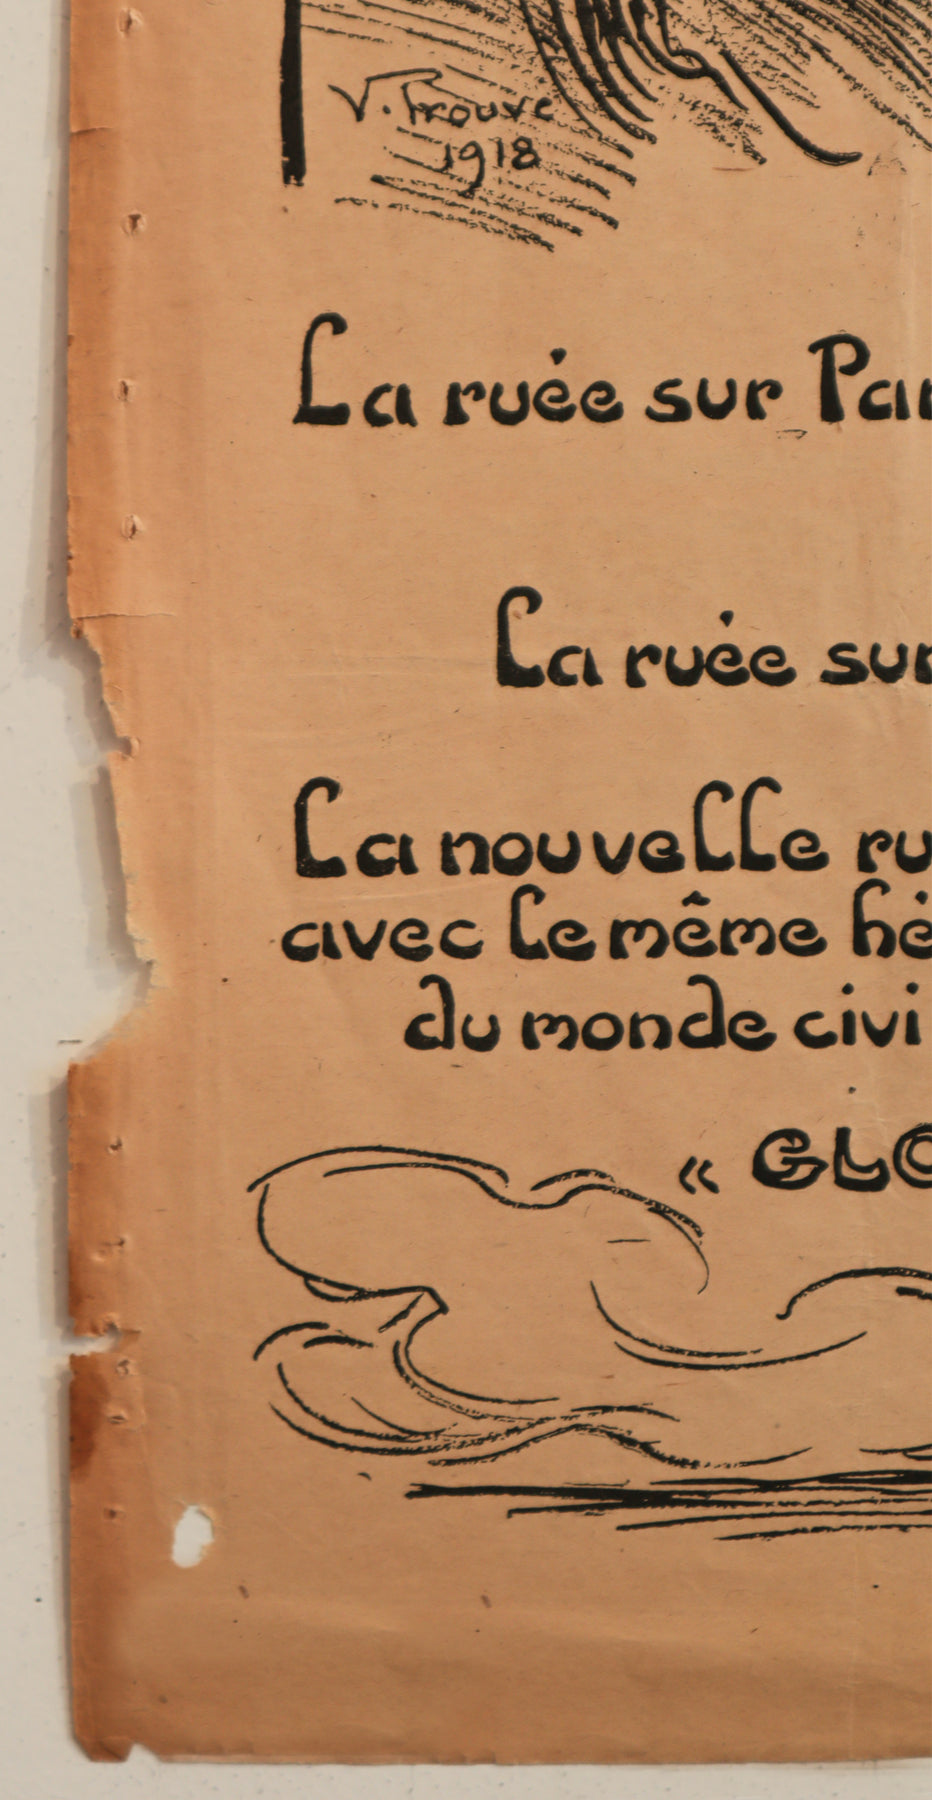 V. Prouvé
1918
La ruée sur Par
La ruée sur
La nouvelle ru
avec le même hé
du monde civi
« GLO